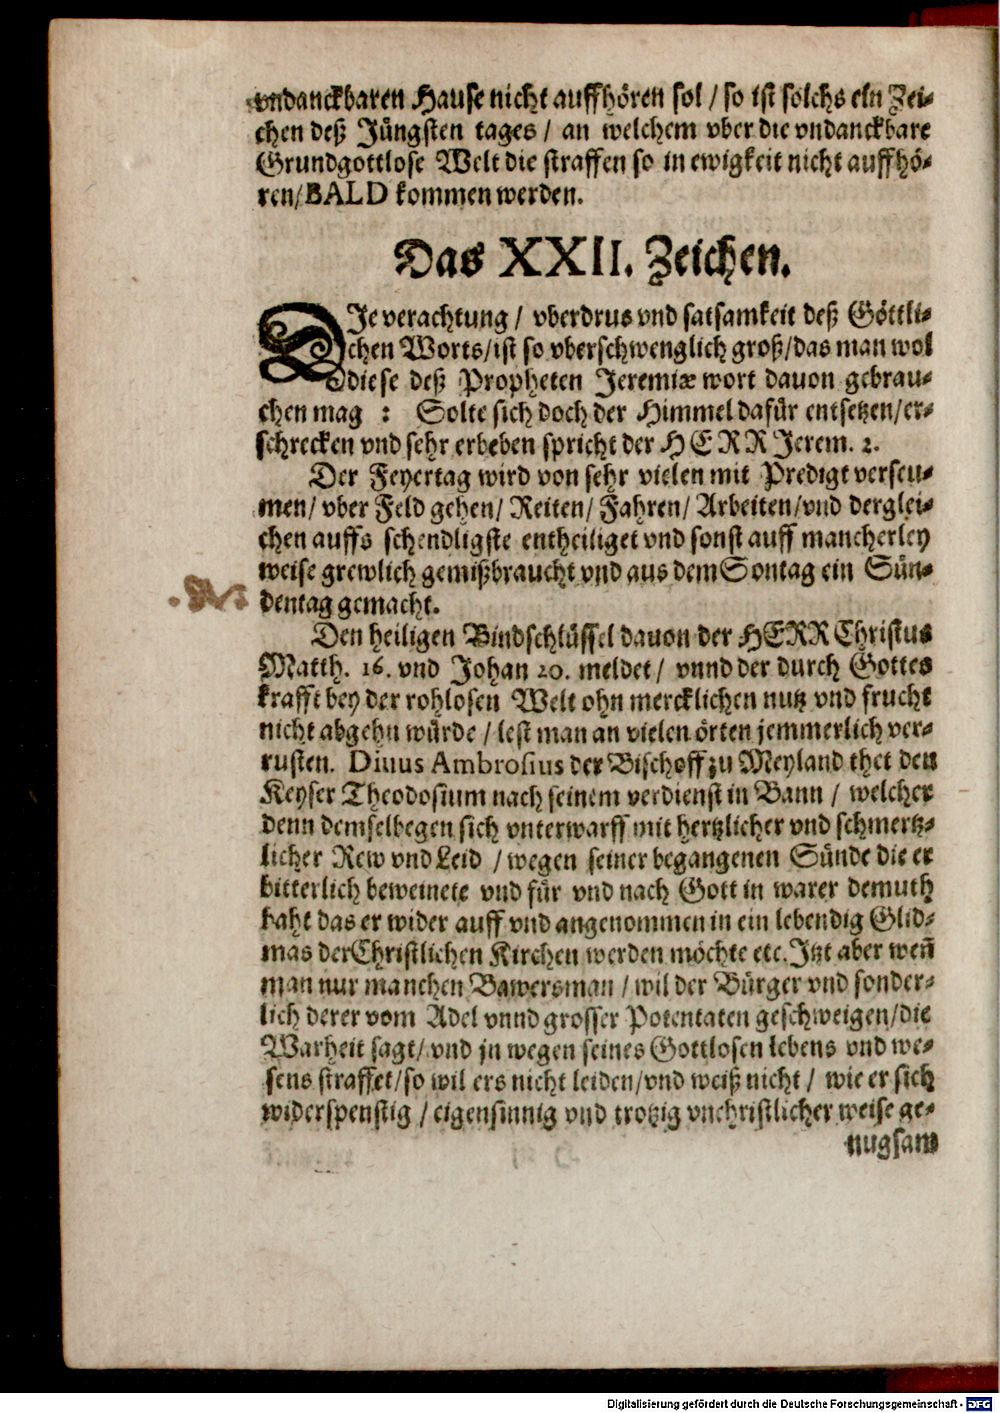 vndanckbaren Hause nicht auffhören sol / so ist solchs ein Zei-
chen deß Jüngsten tages / an welchem vber die vndanckbare
Grundgottlose Welt die straffen so in ewigkeit nicht auffhö-
ren/ BALD kommen werden.
Das XXII. Zeichen.
DIe verachtung / vberdrus vnd satsamkeit deß Göttli-
chen Worts/ist so vberschwenglich groß/das man wol
diese deß Propheten Jeremiæ wort dauon gebrau-
chen mag : Solte sich doch der Himmel dafür entsetzen/er-
schrecken vnd sehr erbeben spricht der HERR Jerem. 2.
Der Feyertag wird von sehr vielen mit Predigt verseu-
men/ vber Feld gehen/ Reiten/ Fahren/ Arbeiten/vnd derglei-
chen auffs schendligste entheiliget vnd sonst auff mancherley
weise grewlich gemißbraucht vnd aus dem Sontag ein Sün-
dentag gemacht.
Den heiligen Bindschlüssel dauon der HERR Christus
Matth. 16. vnd Johan 20. meldet/ vnnd der durch Gottes
krafft bey der rohlosen Welt ohn mercklichen nutz vnd frucht
nicht abgehn würde / lest man an vielen örten jemmerlich ver-
rusten. Diuus Ambrosius der Bischoff zu Meyland thet den
Keyser Theodosium nach seinem verdienst in Bann / welcher
denn demselbegen sich vnterwarff mit hertzlicher vnd schmertz-
licher Rew vnd Leid / wegen seiner begangenen Sünde die er
bitterlich beweinete vnd für vnd nach Gott in warer demuth
baht das er wider auff vnd angenommen in ein lebendig Glid-
mas der Christlichen Kirchen werden möchte etc. Jtzt aber weñ
man nur manchen Bawersman / wil der Bürger vnd sonder-
lich derer vom Adel vnnd grosser Potentaten geschweigen/die
Warheit sagt/ vnd jn wegen seines Gottlosen lebens vnd we-
sens straffet/so wil ers nicht leiden/vnd weiß nicht / wie er sich
widerspenstig / eigensinnig vnd trotzig vnchristlicher weise ge-
nugsam
Digitalisierung gefördert durch die Deutsche Forschungsgemeinschaft - DFG